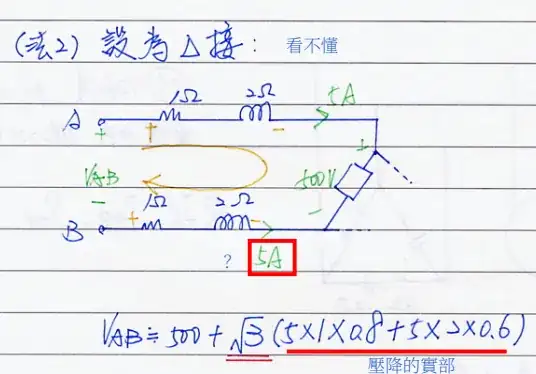 (法2) 設為△接: 看不懂
1Ω 2Ω 5A
A
+ + - +
VAB 500V
- -
1Ω 2Ω
B + -
? 5A
VAB ≒ 500 + √3 (5×1×0.8 + 5×2×0.6)
壓降的實部